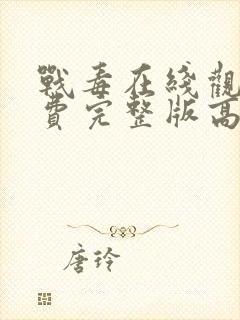 戰毒在綫觀
費完整版高
唐玲